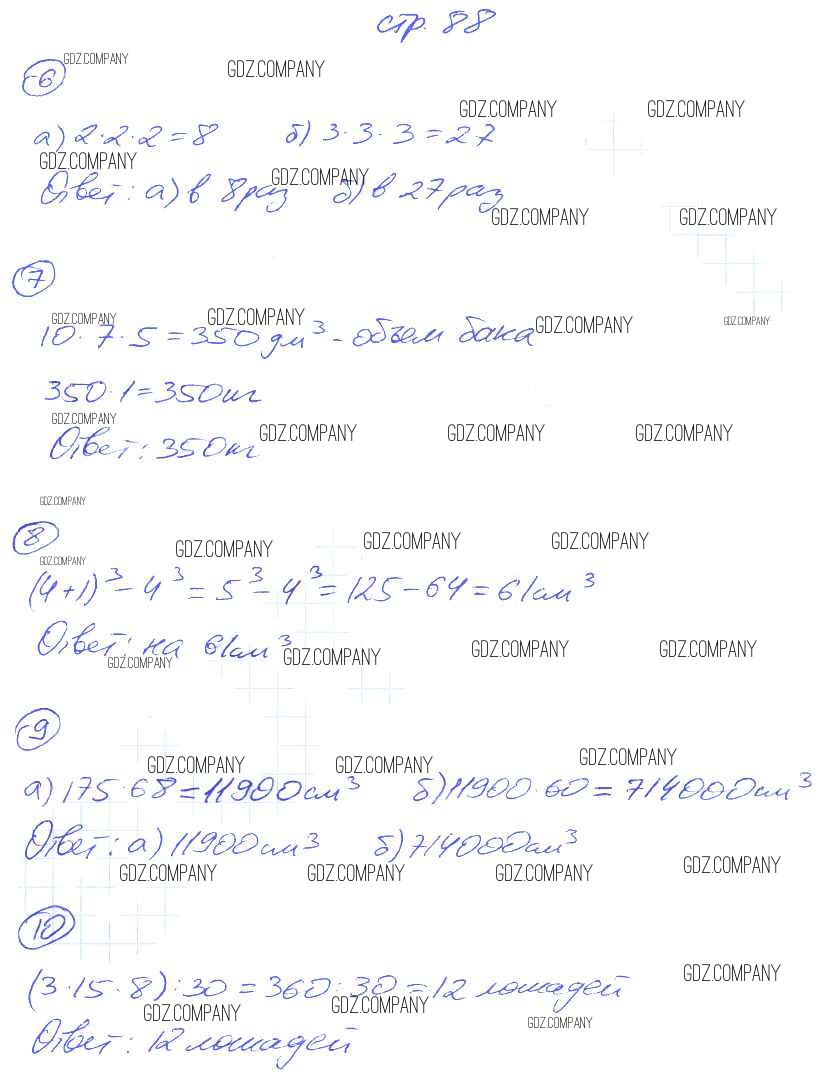 стр. 88
6
GDZ.COMPANY
GDZ.COMPANY
GDZ.COMPANY
GDZ.COMPANY
а) 2·2·2=8 б) 3·3·3=27
GDZ.COMPANY
GDZ.COMPANY
Ответ: а) в 8 раз б) в 27 раз
GDZ.COMPANY
GDZ.COMPANY
7
GDZ.COMPANY
GDZ.COMPANY
GDZ.COMPANY
GDZ.COMPANY
10·7·5=350 дм³ - объем бака
350·1=350 кг
GDZ.COMPANY
GDZ.COMPANY
GDZ.COMPANY
GDZ.COMPANY
Ответ: 350 кг
GDZ.COMPANY
8
GDZ.COMPANY
GDZ.COMPANY
GDZ.COMPANY
GDZ.COMPANY
(4+1)³-4³=5³-4³=125-64=61 см³
Ответ: на 61 см³
GDZ.COMPANY
GDZ.COMPANY
GDZ.COMPANY
GDZ.COMPANY
9
GDZ.COMPANY
GDZ.COMPANY
GDZ.COMPANY
а) 175·68=11900 см³ б) 11900·60=714000 см³
Ответ: а) 11900 см³ б) 714000 см³
GDZ.COMPANY
GDZ.COMPANY
GDZ.COMPANY
GDZ.COMPANY
10
GDZ.COMPANY
(3·15·8):30=360:30=12 лошадей
GDZ.COMPANY
GDZ.COMPANY
GDZ.COMPANY
Ответ: 12 лошадей